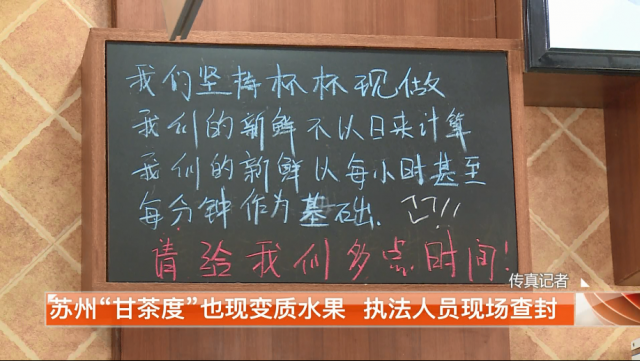 我们坚持杯杯现做
我们的新鲜不以日来计算
我们的新鲜以每小时甚至
每分钟作为基础.
请给我们多点时间!
传真记者
苏州“甘茶度”也现变质水果 执法人员现场查封